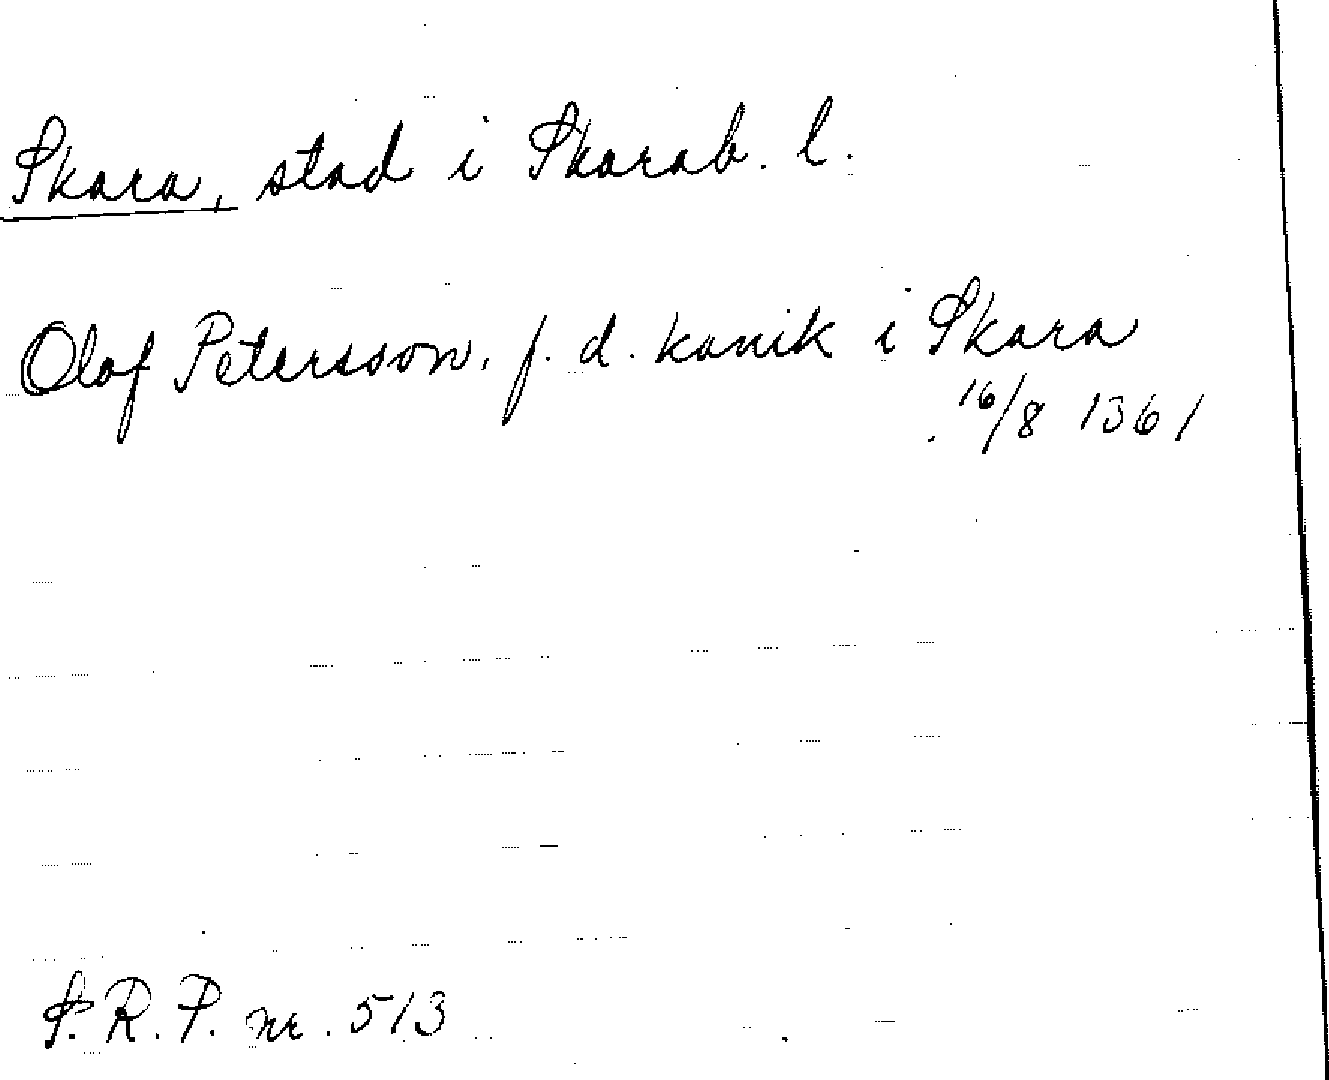 Skara, stad i Skarab. l.
Olof Petersson, f. d. kanik i Skara
16/8 1361
S. R. P. nr. 513